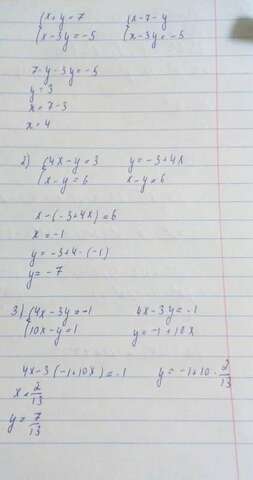 {x+y=7 {x-7-y
{x-3y=-5 {x-3y=-5
7-y-3y=-5
y=3
x=7-3
x=4
2) {4x-y=3 y=-3+4x
{x-y=6 x-y=6
x-(-3+4x)=6
x=-1
y=-3+4·(-1)
y=-7
3) {4x-3y=-1 4x-3y=-1
{10x-y=1 y=-1+10x
4x-3(-1+10x)=-1 y=-1+10·2/13
x=2/13
y=7/13